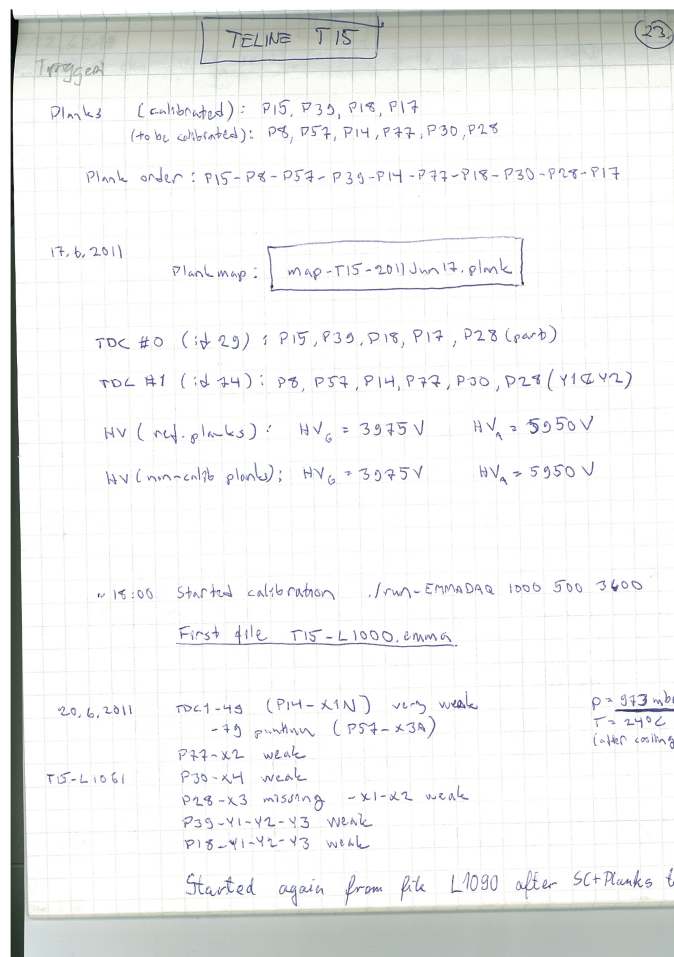 TELINE T15
23.
Trigger
Planks (calibrated): P15, P39, P18, P17
(to be calibrated): P8, P57, P14, P77, P30, P28
Plank order: P15-P8-P57-P39-P14-P77-P18-P30-P28-P17
17.6.2011
Plankmap: map-T15-2011Jun17.plank
TDC #0 (id 29): P15, P39, P18, P17, P28 (part)
TDC #1 (id 74): P8, P57, P14, P77, P30, P28 (Y1&Y2)
HV (ref. planks): HVG = 3975 V HVA = 5950 V
HV (non-calib planks): HVG = 3975 V HVA = 5950 V
~ 18:00 Started calibration ./run-EMMADAQ 1000 500 3600
First file T15-L1000.emma
20.6.2011 TDC1-49 (P14-X1N) very weak p = 973 mba
-79 (P57-X3A) T = 24°C
P77-X2 weak (after
T15-L1061 P30-X4 weak
P28-X3 missing -X1-X2 weak
P39-Y1-Y2-Y3 weak
P18-Y1-Y2-Y3 weak
Started again from file L1090 after SC+Planks